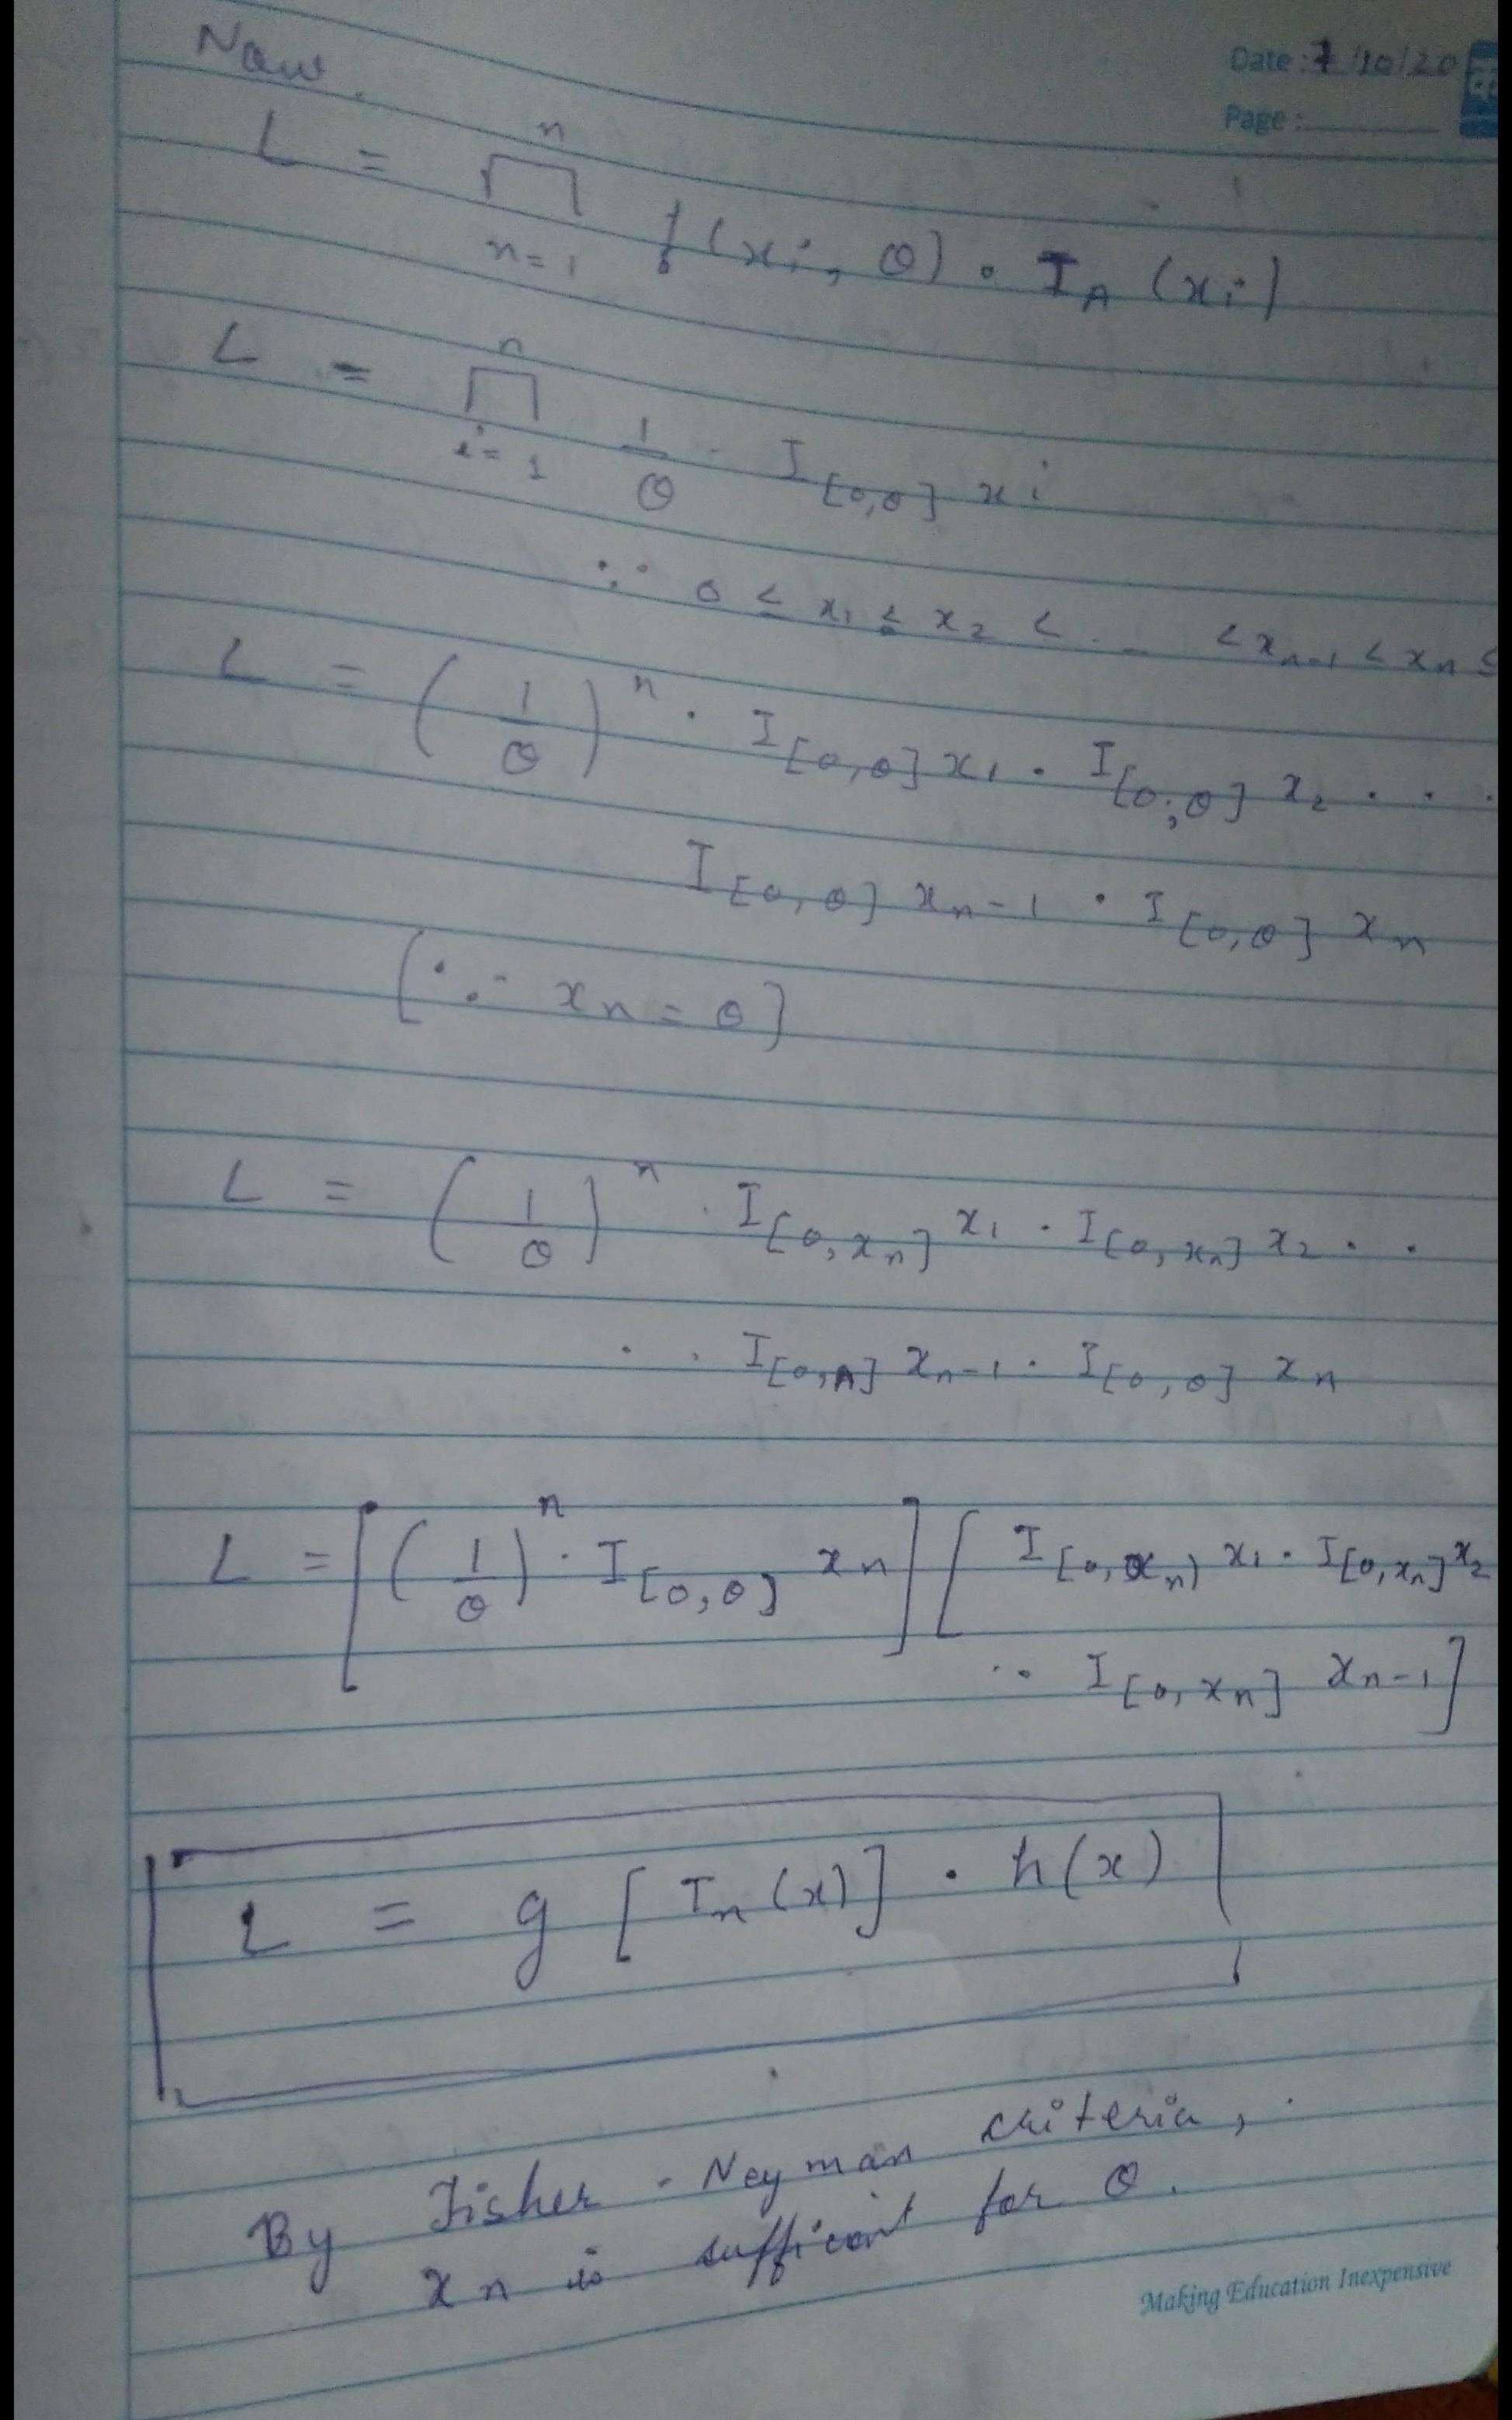 Now
Date : 7/10/20
Page :
L = ∏_{n=1}^{n} f(xi, θ) . I_A (xi)
L = ∏_{i=1}^{n} 1/θ . I_[0,θ] xi
∵ 0 ≤ x₁ ≤ x₂ < . _ < x_{n-1} < x_n ≤
L = (1/θ)^n . I_[0,θ] x₁ . I_[0,θ] x₂ . . .
I_[0,θ] x_{n-1} . I_[0,θ] x_n
[∵ x_n = θ]
L = (1/θ)^n . I_[0,x_n] x₁ . I_[0,x_n] x₂ . .
. . I_[0,n] x_{n-1} . I_[0,θ] x_n
L = [(1/θ)^n . I_[0,θ] x_n] [I_[0,x_n) x₁ . I_[0,x_n] x₂
.. I_[0,x_n] x_{n-1}]
L = g [T_n (x)] . h(x)
By Fisher - Neyman criteria,
x_n is sufficient for θ.
Making Education Inexpensive